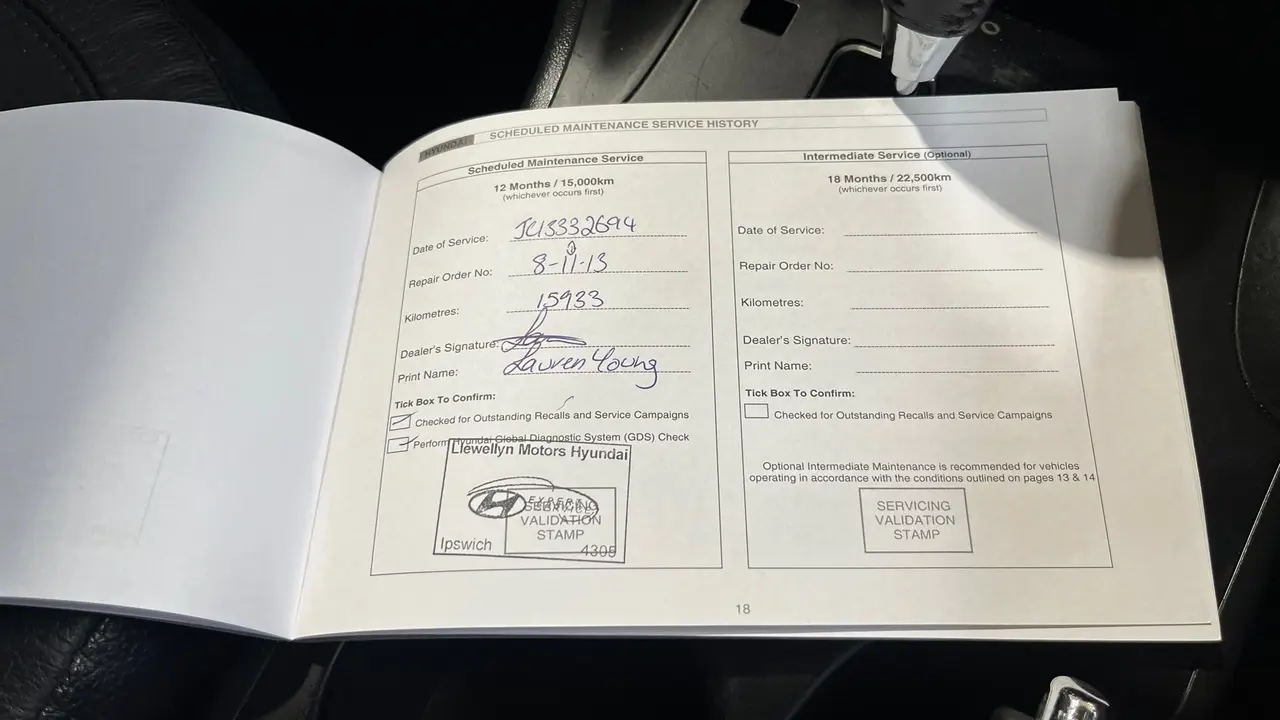 HYUNDAI
SCHEDULED MAINTENANCE SERVICE HISTORY
Scheduled Maintenance Service
12 Months / 15,000km
(whichever occurs first)
Date of Service: JC13332694
Repair Order No: 8-11-13
Kilometres: 15933
Dealer's Signature:
Print Name: Lauren Young
Tick Box To Confirm:
Checked for Outstanding Recalls and Service Campaigns
Perform Hyundai Global Diagnostic System (GDS) Check
Llewellyn Motors Hyundai
SERVICING
VALIDATION
STAMP
Ipswich 4305
Intermediate Service (Optional)
18 Months / 22,500km
(whichever occurs first)
Date of Service:
Repair Order No:
Kilometres:
Dealer's Signature:
Print Name:
Tick Box To Confirm:
Checked for Outstanding Recalls and Service Campaigns
Optional Intermediate Maintenance is recommended for vehicles
operating in accordance with the conditions outlined on pages 13 & 14
SERVICING
VALIDATION
STAMP
18